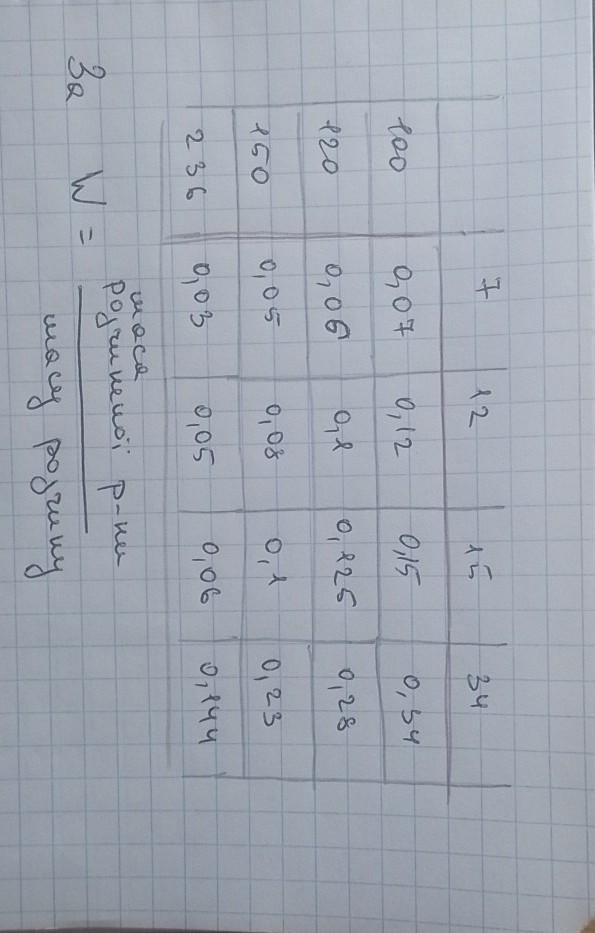 7 12 15 34
100 0,07 0,12 0,15 0,34
120 0,06 0,1 0,125 0,28
150 0,05 0,08 0,1 0,23
236 0,03 0,05 0,06 0,144
За W = маса розчиненої р-ни
масу розчину